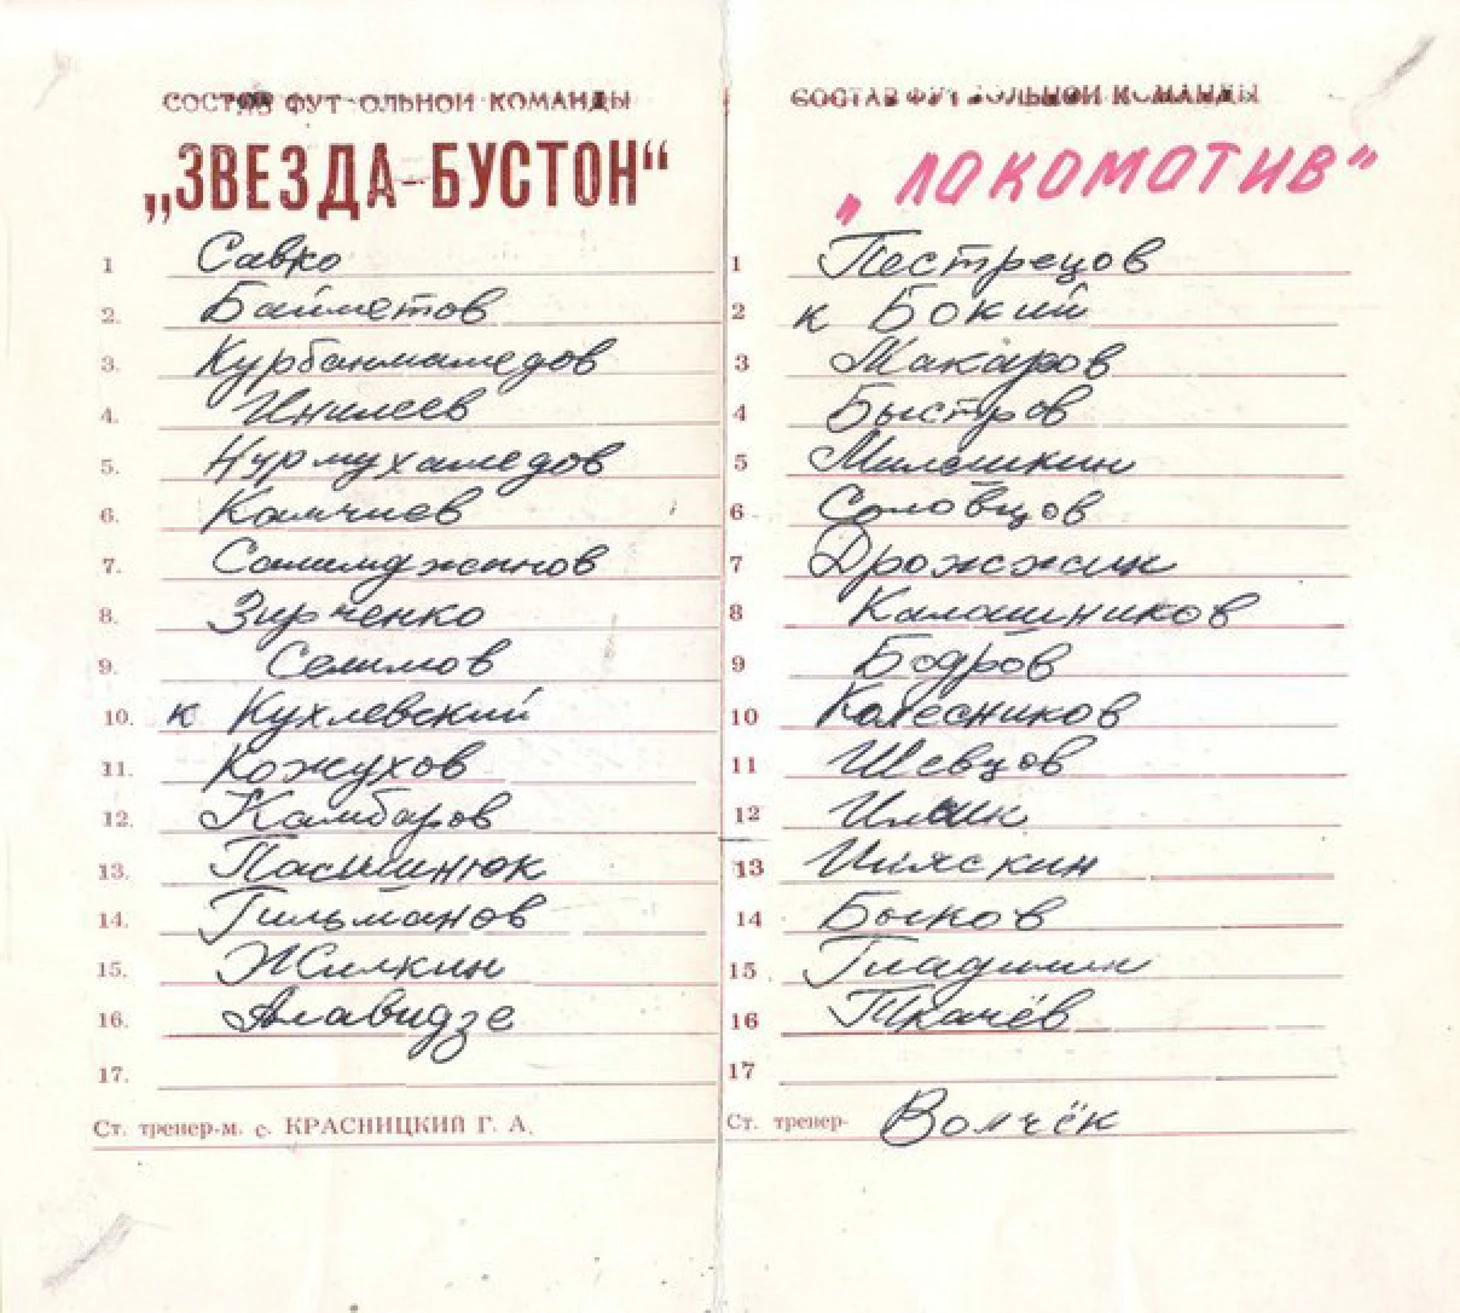 СОСТАВ ФУТБОЛЬНОЙ КОМАНДЫ
„ЗВЕЗДА-БУСТОН“
1 Савко
2. Байметов
3. Курбанмамедов
4. Инилеев
5. Нурмухамедов
6. Камчиев
7. Салимджанов
8. Зирченко
9. Селимов
10. к Кухлевский
11. Кожухов
12. Камбаров
13. Пасишнюк
14. Гильманов
15. Жилкин
16. Алавидзе
17.
Ст. тренер-м. с. КРАСНИЦКИЙ Г. А.
СОСТАВ ФУТБОЛЬНОЙ КОМАНДЫ
„ЛОКОМОТИВ”
1 Пестрецов
2 к Бокий
3 Макаров
4 Быстров
5 Милешкин
6 Соловцов
7 Дрожжин
8 Калашников
9 Бодров
10 Колесников
11 Шевцов
12
13
14 Быков
15 Гладилин
16 Ткачёв
17
Ст. тренер- Волчёк